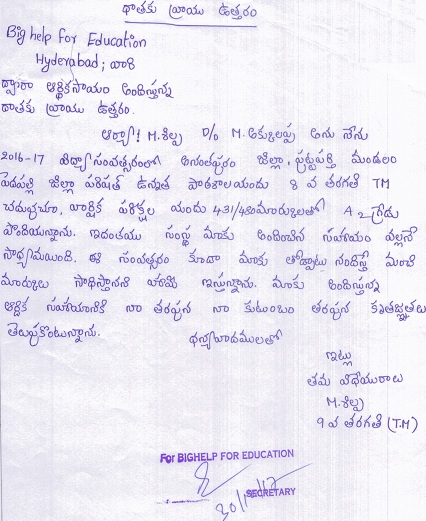 దాతకు వ్రాయు ఉత్తరం
Big help for Education
Hyderabad; వారి
ద్వారా ఆర్థికసాయం అందిస్తున్న
దాతకు వ్రాయు ఉత్తరం.
ఆర్యా! M.శిల్ప D/o M.అక్కులప్ప అను నేను
2016-17 విద్యాసంవత్సరంలో అనంతపురం జిల్లా, పుట్టపర్తి మండలం
పెడపల్లి జిల్లా పరిషత్ ఉన్నత పాఠశాలయందు 8 వ తరగతి TM
చదువుచూ, వార్షిక పరీక్షల యందు 431/480మార్కులతో A 2గ్రేడు
పొందియున్నాను. ఇదంతయు సంస్థ మాకు అందించిన సహాయం వల్లనే
సాధ్యమయింది. ఈ సంవత్సరం కూడా మాకు తోడ్పాటు నందిస్తే మంచి
మార్కులు సాధిస్తానని హామీ ఇస్తున్నాను. మాకు అందిస్తున్న
ఆర్థిక సహాయానికి నా తరఫున నా కుటుంబం తరఫున కృతజ్ఞతలు
తెలుపుకొంటున్నాను.
ధన్యవాదములతో
ఇట్లు
తమ విధేయురాలు
M.శిల్ప
9 వ తరగతి (T.M)
For BIGHELP FOR EDUCATION
SECRETARY